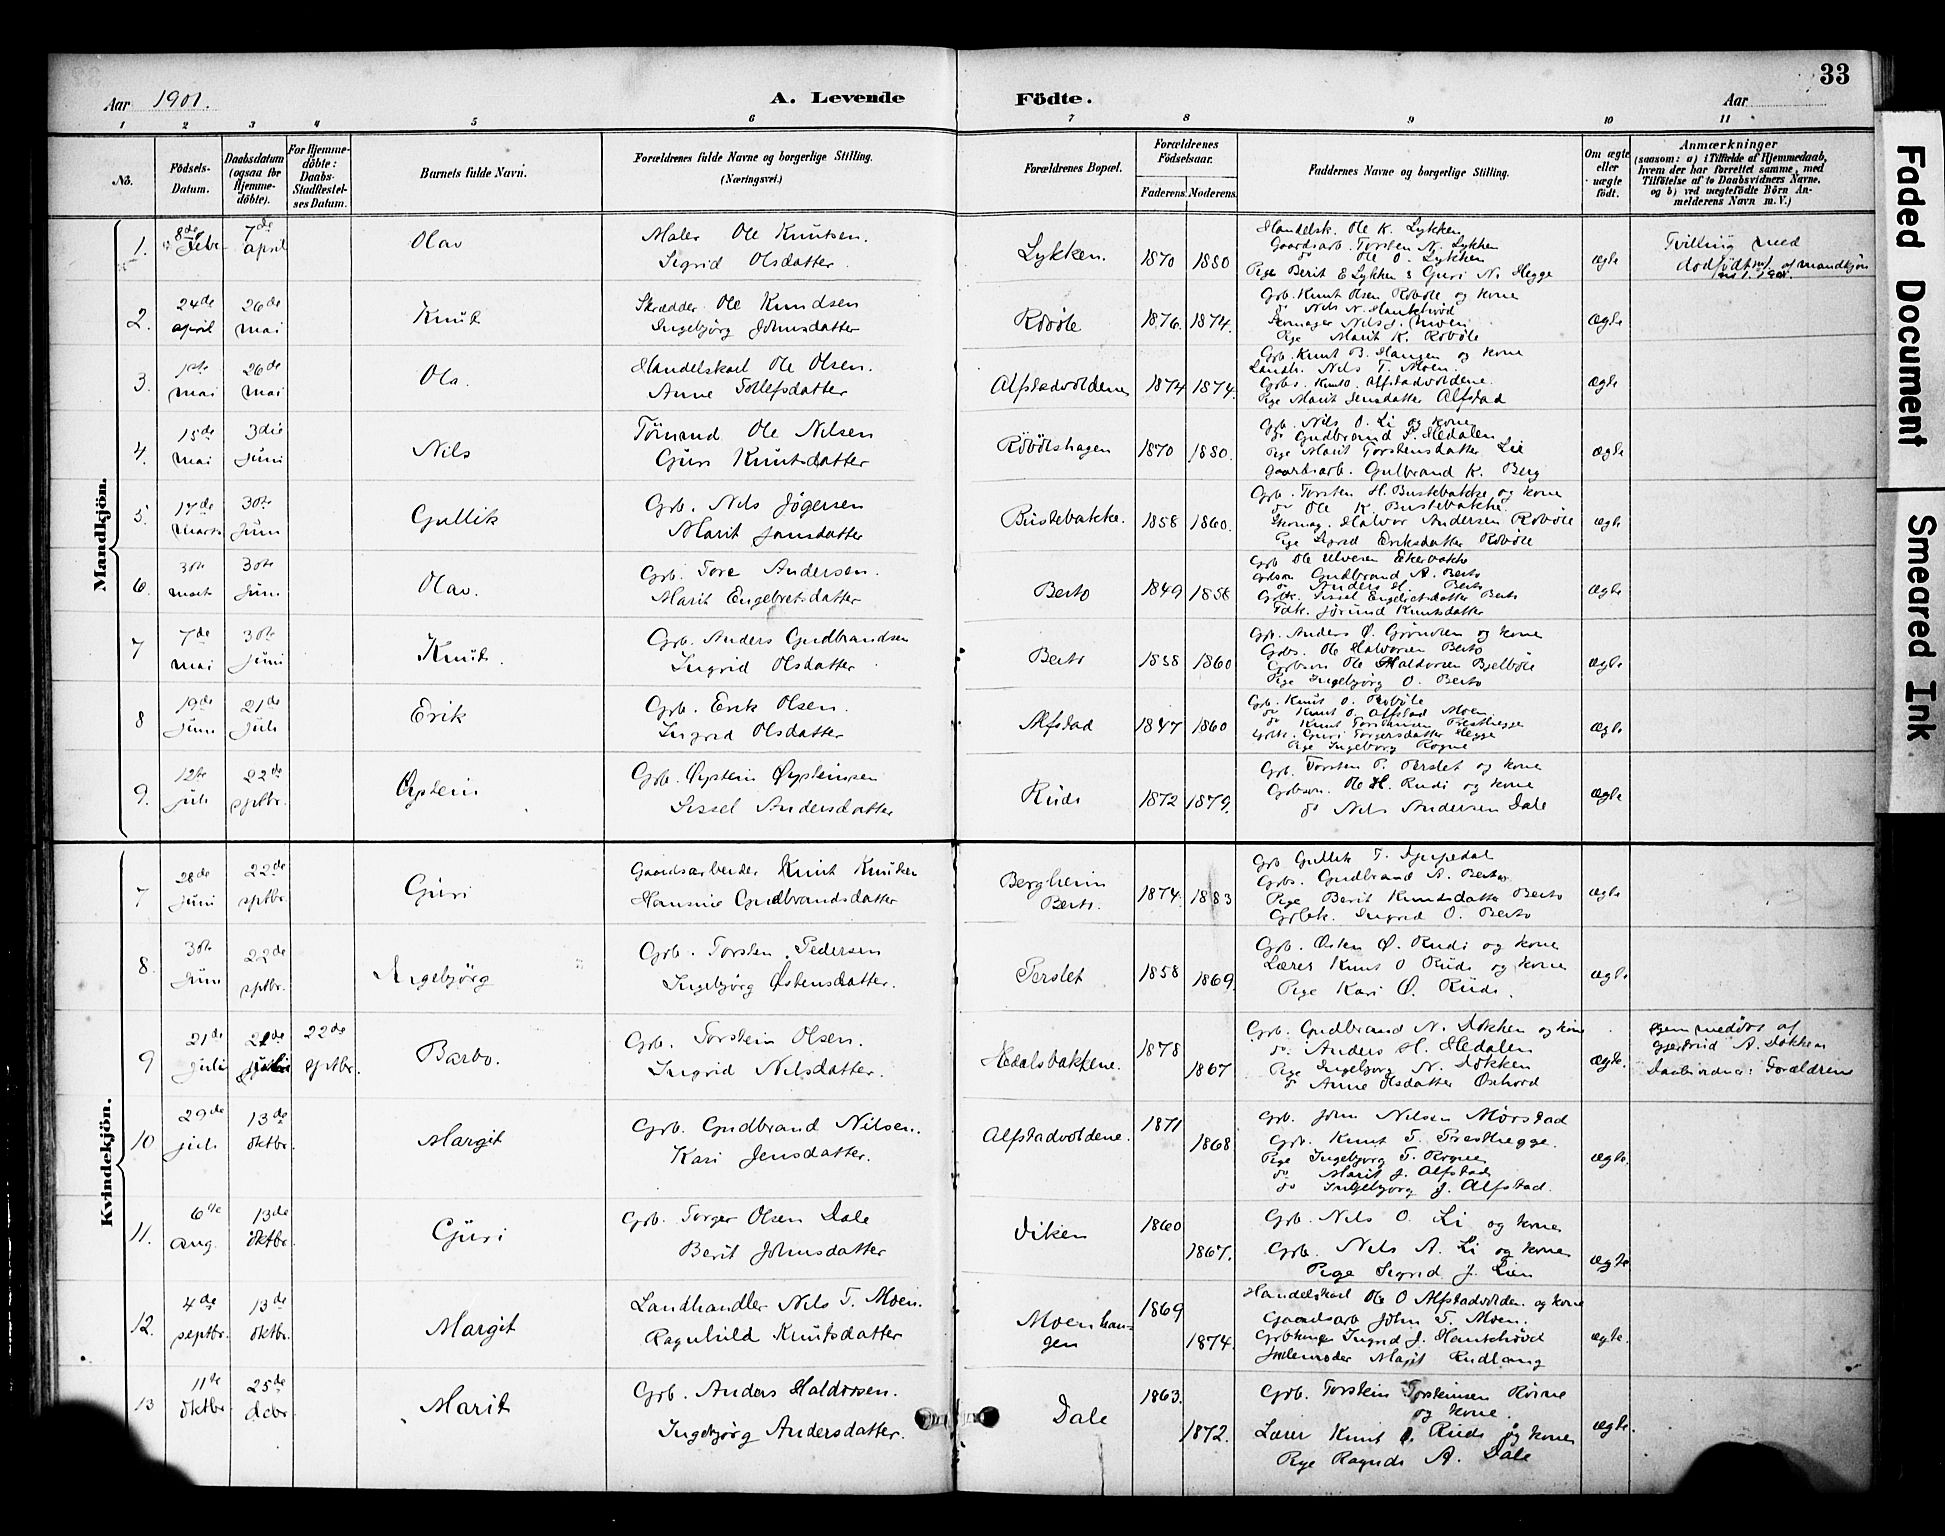 33
Aar 1901.
A. Levende Födte.
Aar
1 2 3 4 5 6 7 8 9 10 11
No.
Födsels-Datum.
Daabsdatum (ogsaa for Hjemme-döbte).
For Hjemme-döbte: Daabs-Stadfæstel-ses Datum.
Barnets fulde Navn.
Forældrenes fulde Navne og borgerlige Stilling.
(Næringsvei.)
Forældrenes Bopæl.
Forældrenes Födselsaar.
Faderens. Moderens.
Faddernes Navne og borgerlige Stilling.
Om ægte eller uægte födt.
Anmærkninger
(saasom: a) i Tilfælde af Hjemmedaab,
hvem der har forrettet samme, med
Tilföielse af to Daabsvidners Navne,
og b) ved uægtefödte Börn An-
melderens Navn m. V.)
Mandkjön.
1. 8de Febr. 7de april
Olav
Maler Ole Knutsen.
Sigrid Olsdatter.
Lykken. 1870 1880
Handelsk. Ole K. Lykken
Gaardsarb. Torsten N. Lykken
do Ole O. Lykken
Pige Berit E Lykken & Guri N. Hegge
ægte
Tvilling med
dødfødt af mandkjøn
2. 24de april 26de mai
Knut
Skrædder Ole Knudsen
Ingebjörg Johnsdatter
Röböle 1876. 1874.
Grb. Knut Olsen Röböle og kone
do Nils N. Haukehöid
Skomager Nils J. Moen
Pige Marit K. Röböle
ægte
3. 1ste mai 26de mai
Ola.
Handelskarl Ole Olsen.
Anne Tollefsdatter
Alfstadvoldene 1874 1874.
Grb. Knut B. Haugen og kone
Landh. Nils T. Moen.
Grbs. Knut O. Alfstadvoldene.
Pige Marit Jensdatter Alfstad
ægte
4. 15de mai 3die Juni
Nils
Tömmd Ole Nilsen
Guri Knutsdatter
Röböleshagen 1870 1880.
Grb. Nils O. Li og kone
do Gudbrand T. Hedalen
Pige Marit Torstensdatter Lie
Gaardsarb. Gulbrand K. Berg
ægte
5. 17de marts 30te Juni
Gullik
Grb. Nils Jögersen
Marit Jonsdatter
Büstebakke. 1858 1860.
Grb. Torsten H. Bustebakke og kone
do Ole K. Bustebakke.
Skomag. Halvor Andersen Röböle
Pige Sigrid Eriksdatter Röböle
ægte
6. 30te marts 30te Juni
Olav.
Grb. Tore Andersen.
Marit Engebretsdatter
Berto 1849 1858
Grb Ole Ulveren Ekerbakke
Grbsøn Gudbrand A. Berto
do Anders H. Berto
Grbdt. Sissel Engebretsdatter Berto
Fdk. Jörund Knutsdatter
ægte
7 7de mai 30te Juni
Knut.
Grb. Anders Gudbrandsen
Ingrid Olsdatter
Berto 1858 1860
Grb. Anders Ø. Grönolen og kone
Grbs. Ole Halvorsen Berto
Grbsøn Ole Haldorsen Bjelböle
Pige Ingebjörg O. Berto
ægte
8 19de Juni 21de Juli
Erik
Grb. Erik Olsen.
Ingrid Olsdatter
Alfstad 1847 1860
Grb. Knut O. Röböle
do Knut O. Alfstad Moen
do Knut Torstensen Præsthegge
Grbk. Guri Torgersdatter Hegge
Pige Ingeborg Rogne
ægte
9. 12te juli 22de sptbr.
Øystein
Grb. Øystein Øysteinsen
Sissel Andersdatter
Rudi 1872 1879.
Grb. Torsten P. Perslet og kone
Grbsøn. Ole H. Rudi og kone
do Nils Andersen Dale
ægte
Kvindekjön.
7 28de Juni 22de sptbr
Guri
Gaardsarbeider Knut Knutsen
Hansine Gudbrandsdatter
Bergheim
Berto. 1874. 1883
Grb Gullik T. Djupedal
Grbs. Gudbrand A. Berto
Pige Berit Knudsdatter Berto
Grbdt. Ingrid O. Berto
ægte
8. 30te Juni 22de sptbr.
Ingebjörg
Grb. Torsten Pedersen
Ingebjörg Østensdatter.
Perslet 1858 1869.
Grb. Østen Ø. Rudi og kone
Lærer Knut O Rudi og kone
Pige Kari Ø. Rudi.
ægte
9 21de juli 21de juli 22de sptbr.
Barbo.
Grb. Torstein Olsen.
Ingrid Nilsdatter.
Hedalsbakkene. 1878 1867
Grb. Gudbrand N. Dokken og kone
do. Anders H. Hedalen
Pige Ingebjorg N. Dokken
do Anne Olsdatter Oshord
ægte.
Hjemmedöbt af
Gjertrud A. Dokken
Daabsvidner: Forældrene
10 29de juli 13de oktbr.
Margit
Grb. Gudbrand Nilsen.
Kari Jensdatter.
Alfstadvoldene. 1871 1868
Grb. John Nilsen Mörstad
Grb. Knut T. Præsthegge.
Pige Ingebjorg T. Rogne
do Marit J. Alfstad
do Ingebjorg J. Alfstad.
ægte.
11. 6te Aug. 13de oktbr.
Guri
Grb. Torger Olsen Dale
Berit Johnsdatter
Viken 1860 1867.
Grb. Nils O. Li og kone
Grb. Nils A. Li og kone
Pige Sigrid J. Lien
ægte
12. 4de septbr. 13de oktbr.
Margit
Landhandler Nils T. Moen.
Ragnhild Knutsdatter
Moenhau-
gen 1869 1874.
Handelskarl Ole O Alfstadvolden. og kone
Gaardsarb John T. Moen.
Grbkone Ingrid J. Haukehöid
Jordemoder Marit Rudlang
ægte.
13 11te oktbr 25de decbr
Marit
Grb. Anders Haldorsen.
Ingebjörg Andersdatter.
Dale 1863. 1872.
Grb. Torstein Torsteinsen Rogne
og kone.
Lærer Knut O. Rudi og kone
Pige Ragndi A. Dale
ægte.
Faded Document
Smeared Ink